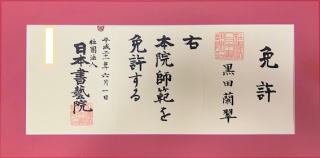 免許
黒田蘭翠
右
本院師範を
免許する
平成二十一年六月一日
社團法人
日本書藝院